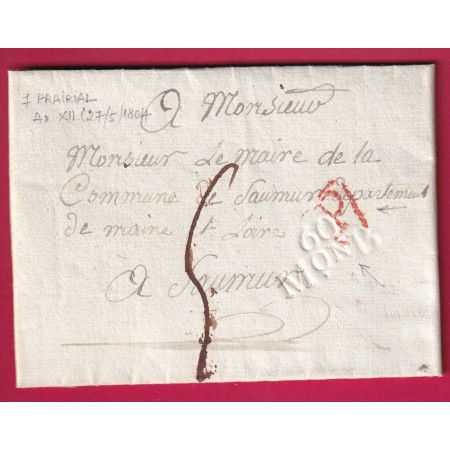 7 PRAIRIAL
An XII (27/5/1804
A Monsieur
Monsieur Le maire de la
Commune de Saumur departement
de maine et Loire
A Saumur
P
60
MOND